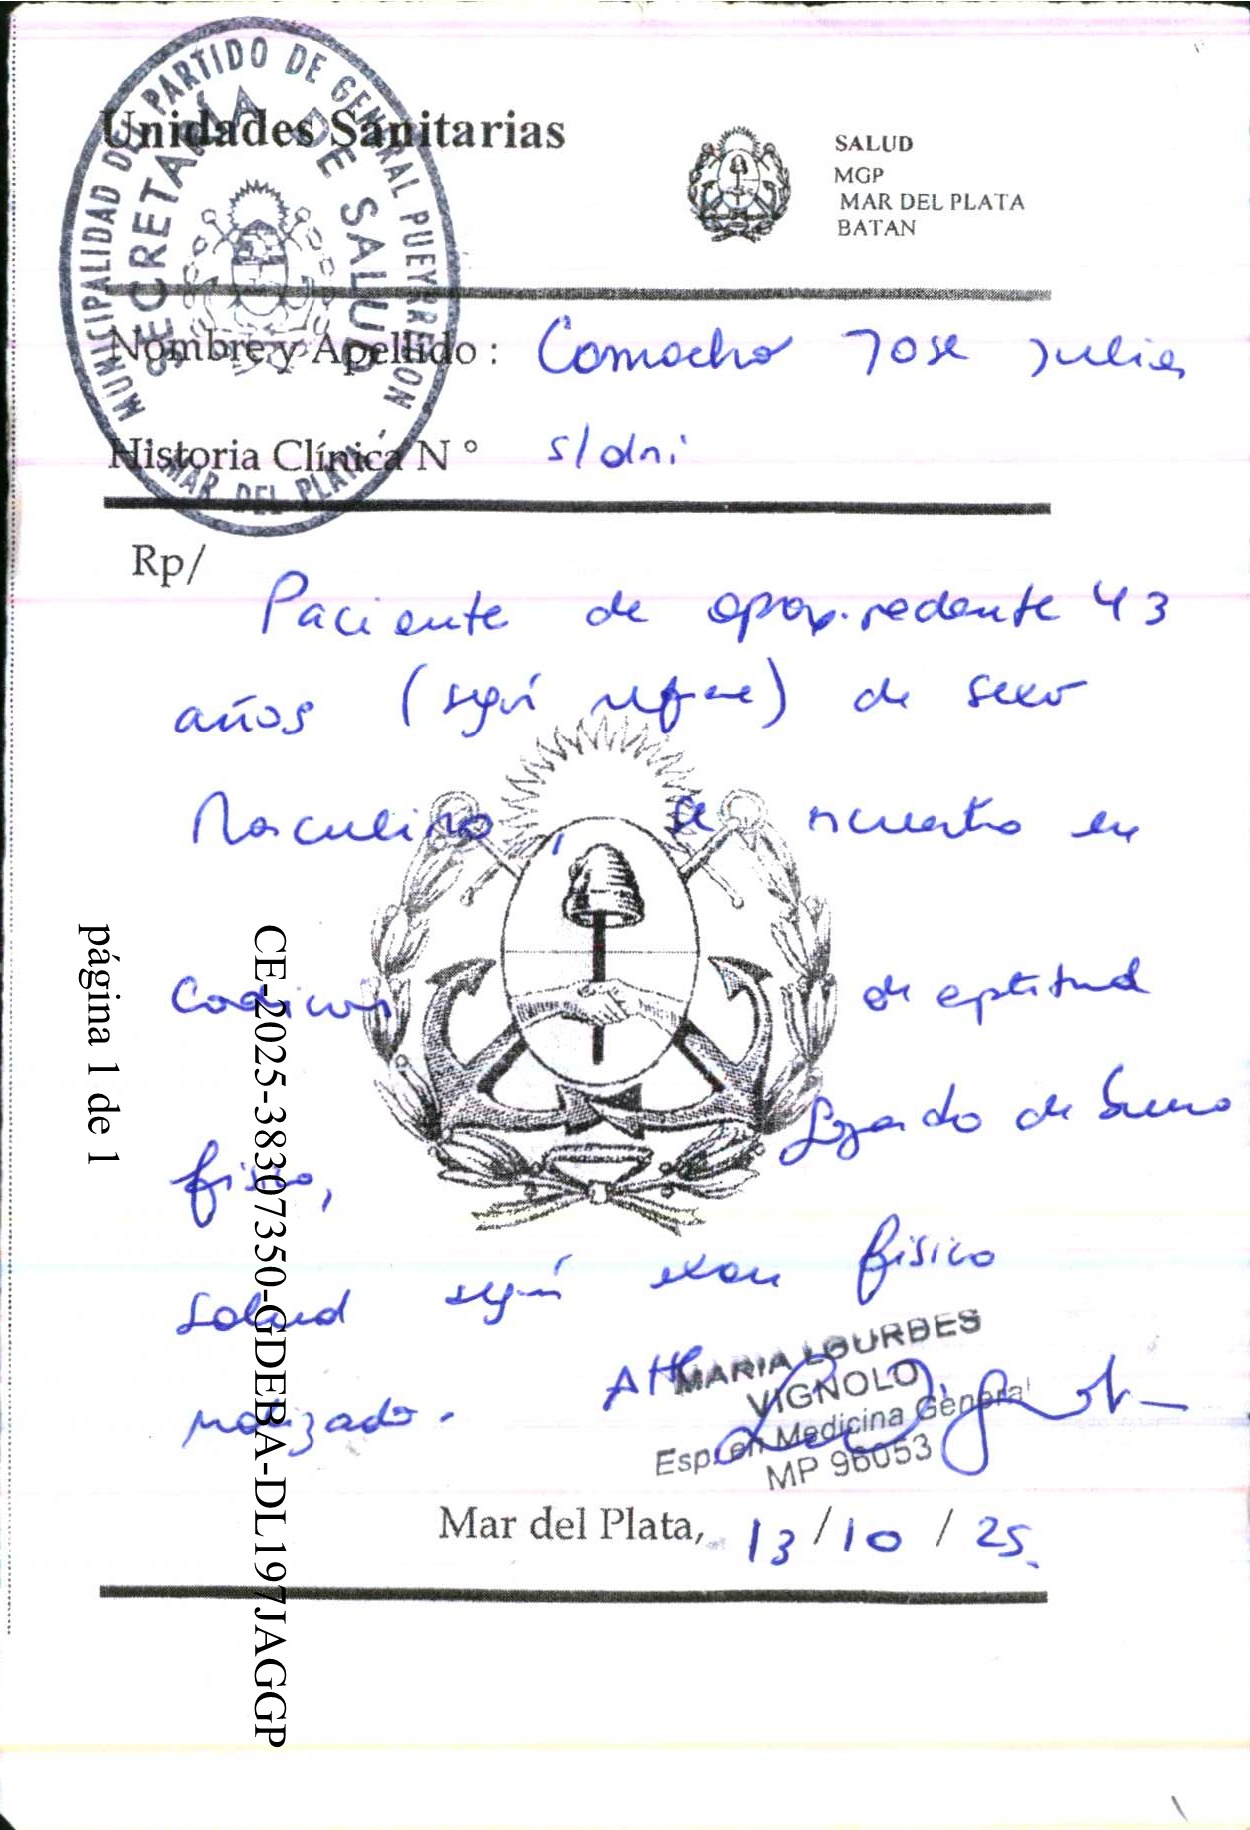 MUNICIPALIDAD DEL PARTIDO DE GENERAL PUEYRREDON - MAR DEL PLATA -
SECRETARÍA DE SALUD
Unidades Sanitarias
SALUD
MGP
MAR DEL PLATA
BATAN
Nombre y Apellido : Camacho Jose Julian
Historia Clínica N ° s/dni
Rp/
Paciente de aprox. 43
años (según refiere) de sexo
Masculino, se encuentra en
de aptitud
físico, de buena
salud según examen físico
realizado. Att
MARIA LOURDES
VIGNOLO
Esp. en Medicina General
MP 96053
Mar del Plata, 13 / 10 / 25
CE-2025-38307350-GDEBA-DL197JAGGP
página 1 de 1